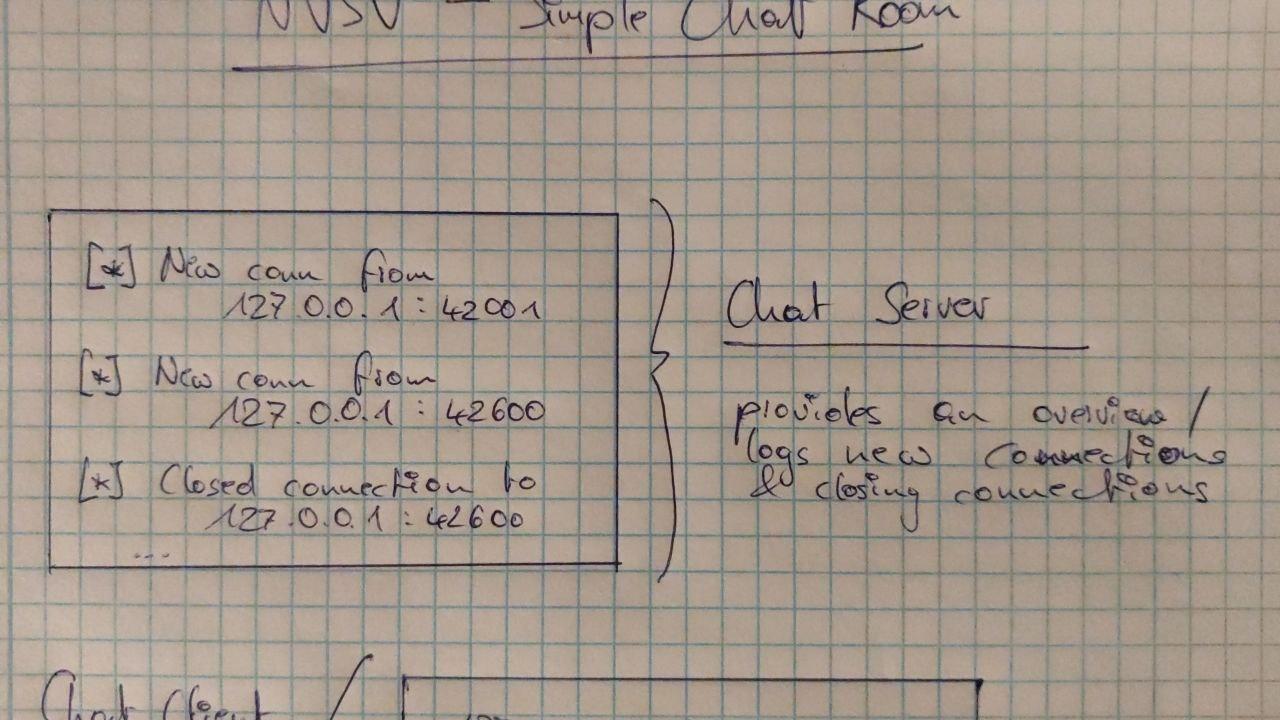 NVSV - Simple Chat Room
[*] New conn from
127.0.0.1 : 42001
[*] New conn from
127.0.0.1 : 42600
[*] Closed connection to
127.0.0.1 : 42600
...
Chat Server
provides an overview /
logs new connections
& closing connections
Chat Client